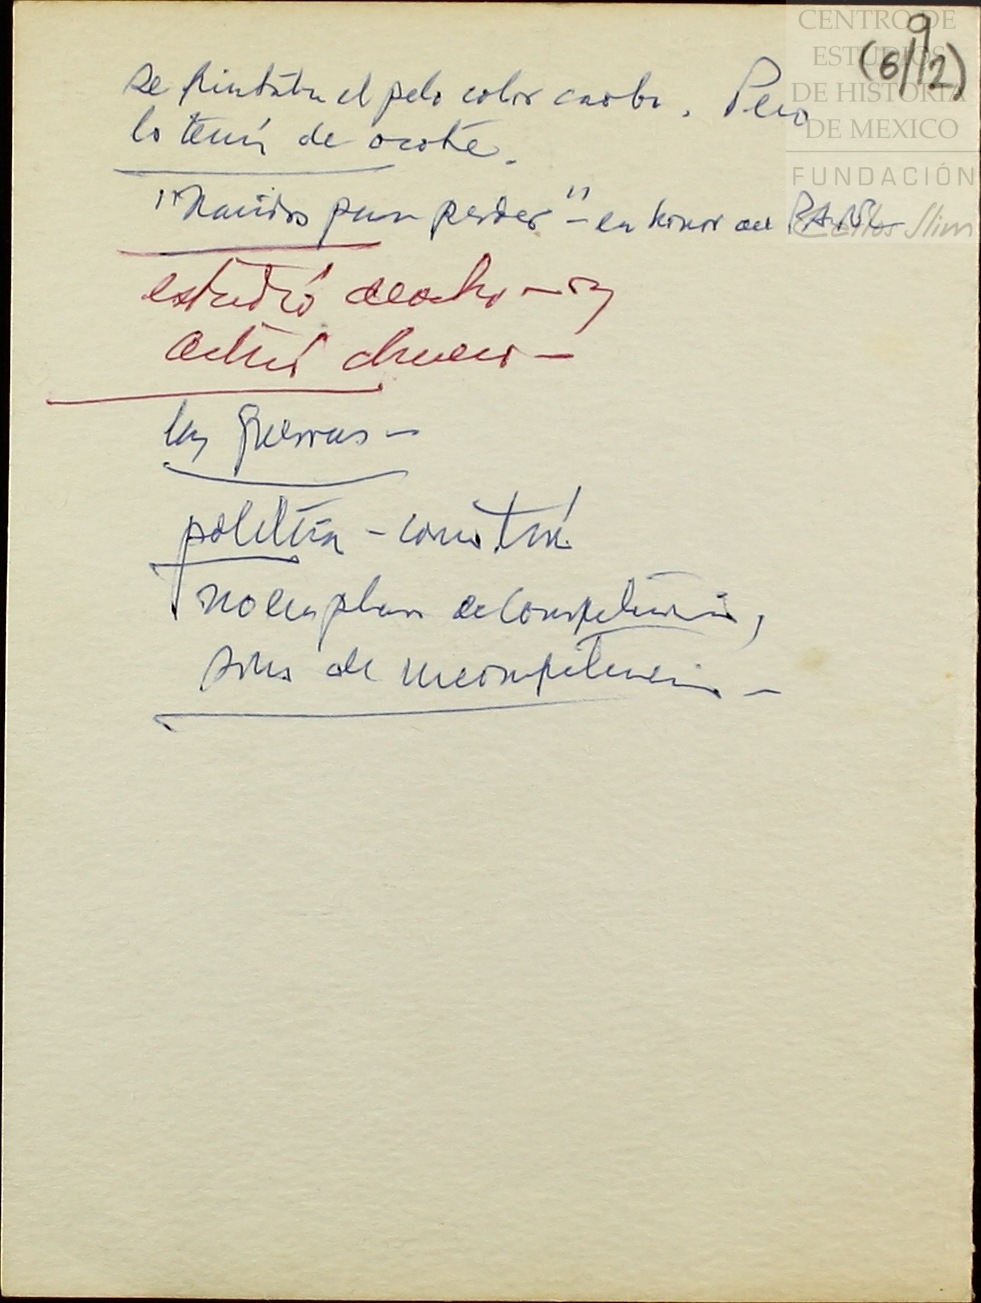 9
(6/12)
CENTRO DE
ESTUDIOS
DE HISTORIA
DE MEXICO
FUNDACIÓN
Carlos Slim
se pintaba el pelo color caoba. Pero
lo tenía de ocote.
"Nacidos para perder" – en honor del
estudió derecho – y
actuó chueco –
las guerras –
política –
no en plan de competencia,
sino de incompetencia –